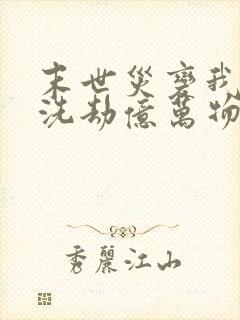 末世災變我
洗劫億萬物
秀麗江山